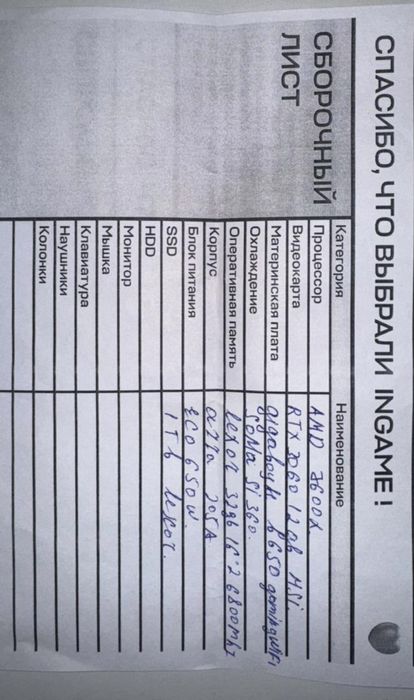 СПАСИБО, ЧТО ВЫБРАЛИ INGAME!
СБОРОЧНЫЙ
ЛИСТ
Категория Наименование
Процессор AMD 7600X
Видеокарта RTX 3060 12 gb M.Si
Материнская плата gigabyte b650 gaming wifi
Охлаждение Soma Si 360.
Оперативная память lexar 32gb 16*2 6800Mhz
Корпус 205A
Блок питания ECO 650W.
SSD 1Tb lexar.
HDD
Монитор
Мышка
Клавиатура
Наушники
Колонки